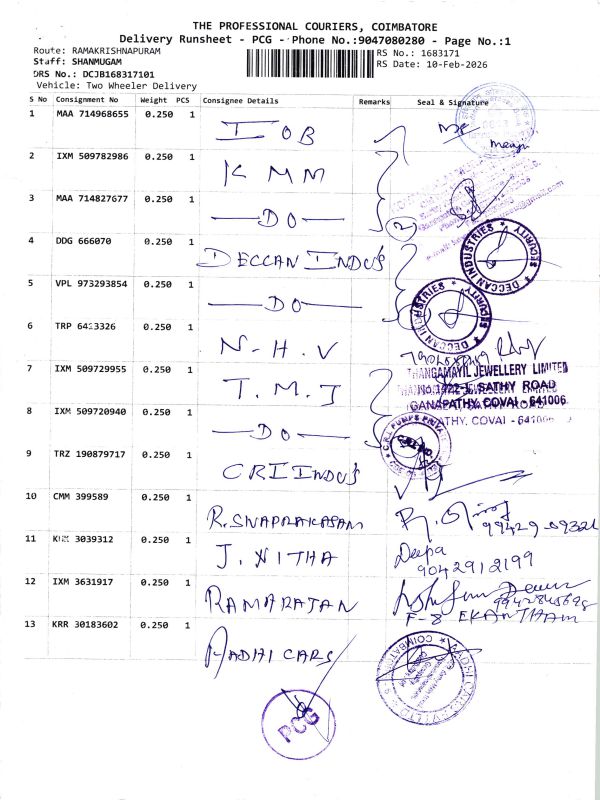 THE PROFESSIONAL COURIERS, COIMBATORE
Delivery Runsheet - PCG - Phone No.:9047080280 - Page No.:1
Route: RAMAKRISHNAPURAM
RS No.: 1683171
Staff: SHANMUGAM
RS Date: 10-Feb-2026
DRS No.: DCJB168317101
Vehicle: Two Wheeler Delivery
S No Consignment No Weight PCS Consignee Details Remarks Seal & Signature
1 MAA 714968655 0.250 1 IOB
2 IXM 509782986 0.250 1 KMM
3 MAA 714827677 0.250 1 —DO—
2
4 DDG 666070 0.250 1 DECCAN INDU'S
DECCAN INDUSTRIES * SECURITY *
5 VPL 973293854 0.250 1 —DO—
DECCAN INDUSTRIES * SECURITY *
6 TRP 6413326 0.250 1 N-H.V
7 IXM 509729955 0.250 1 T.M.J
THANGAMAYIL JEWELLERY LIMITED
SATHY ROAD
GANAPATHY, COVAI - 641006
8 IXM 509720940 0.250 1 —DO—
9 TRZ 190879717 0.250 1 CRI INDU'S
C.R.I. PUMPS PRIVATE
10 CMM 399589 0.250 1 R. SIVAPRAKASAM
11 3039312 0.250 1 J. NITHA Deepa
9042912199
12 IXM 3631917 0.250 1 RAMARAJAN
F-8 EKANTHAM
13 KRR 30183602 0.250 1 AADHI CARS
COIMBATORE
PCG